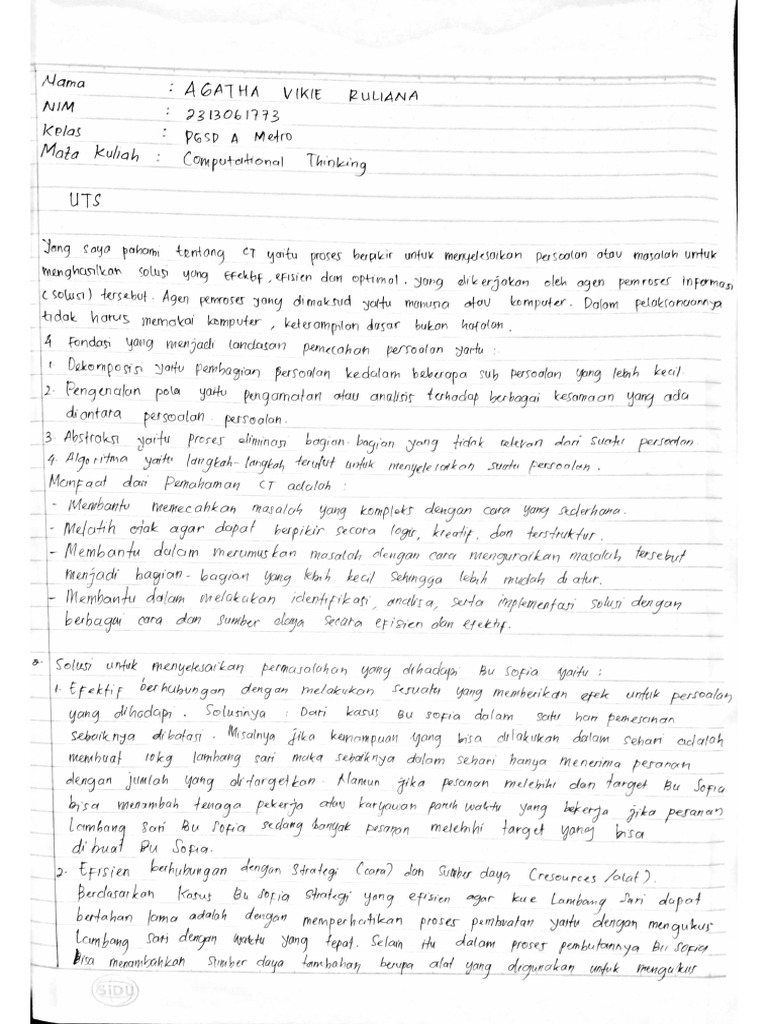 Nama : AGATHA VIKIE RULIANA
NIM : 2313061773
Kelas : PGSD A Metro
Mata Kuliah : Computational Thinking
UTS
Yang saya pahami tentang CT yaitu proses berpikir untuk menyelesaikan persoalan atau masalah untuk
menghasilkan solusi yang efektif, efisien dan optimal. yang dikerjakan oleh agen pemroses informasi
(solusi) tersebut. Agen pemroses yang dimaksud yaitu manusia atau komputer. Dalam pelaksanaannya
tidak harus memakai komputer, keterampilan dasar bukan hafalan.
4 Fondasi yang menjadi landasan pemecahan persoalan yaitu :
1. Dekomposisi yaitu pembagian persoalan kedalam beberapa sub persoalan yang lebih kecil.
2. Pengenalan pola yaitu pengamatan atau analisis terhadap berbagai kesamaan yang ada
diantara persoalan - persoalan.
3. Abstraksi yaitu proses eliminasi bagian-bagian yang tidak relevan dari suatu persoalan
4. Algoritma yaitu langkah-langkah terurut untuk menyelesaikan suatu persoalan.
Manfaat dari Pemahaman CT adalah :
- Membantu memecahkan masalah yang kompleks dengan cara yang sederhana.
- Melatih otak agar dapat berpikir secara logis, kreatif, dan terstruktur.
- Membantu dalam merumuskan masalah dengan cara menguraikan masalah tersebut
menjadi bagian-bagian yang lebih kecil sehingga lebih mudah diatur.
- Membantu dalam melakukan identifikasi, analisa, serta implementasi solusi dengan
berbagai cara dan sumber daya secara efisien dan efektif.
2. Solusi untuk menyelesaikan permasalahan yang dihadapi Bu Sofia yaitu :
1. Efektif berhubungan dengan melakukan sesuatu yang memberikan efek untuk persoalan
yang dihadapi. Solusinya : Dari kasus Bu Sofia dalam satu hari pemesanan
sebaiknya dibatasi. Misalnya jika kemampuan yang bisa dilakukan dalam sehari adalah
membuat 10kg lambang sari maka sebaiknya dalam sehari hanya menerima pesanan
dengan jumlah yang ditargetkan. Namun jika pesanan melebihi dari target Bu Sofia
bisa menambah tenaga pekerja atau karyawan paruh waktu yang bekerja jika pesanan
Lambang Sari Bu Sofia sedang banyak pesanan melebihi target yang bisa
dibuat Bu Sofia.
2. Efisien berhubungan dengan strategi (cara) dan sumber daya (resources/alat).
Berdasarkan Kasus Bu Sofia strategi yang efisien agar kue Lambang Sari dapat
bertahan lama adalah dengan memperhatikan proses pembuatan yaitu dengan mengukus
Lambang Sari dengan waktu yang tepat. Selain itu dalam proses pembutannya Bu Sofia
bisa menambahkan sumber daya tambahan berupa alat yang digunakan untuk mengukus
SiDU